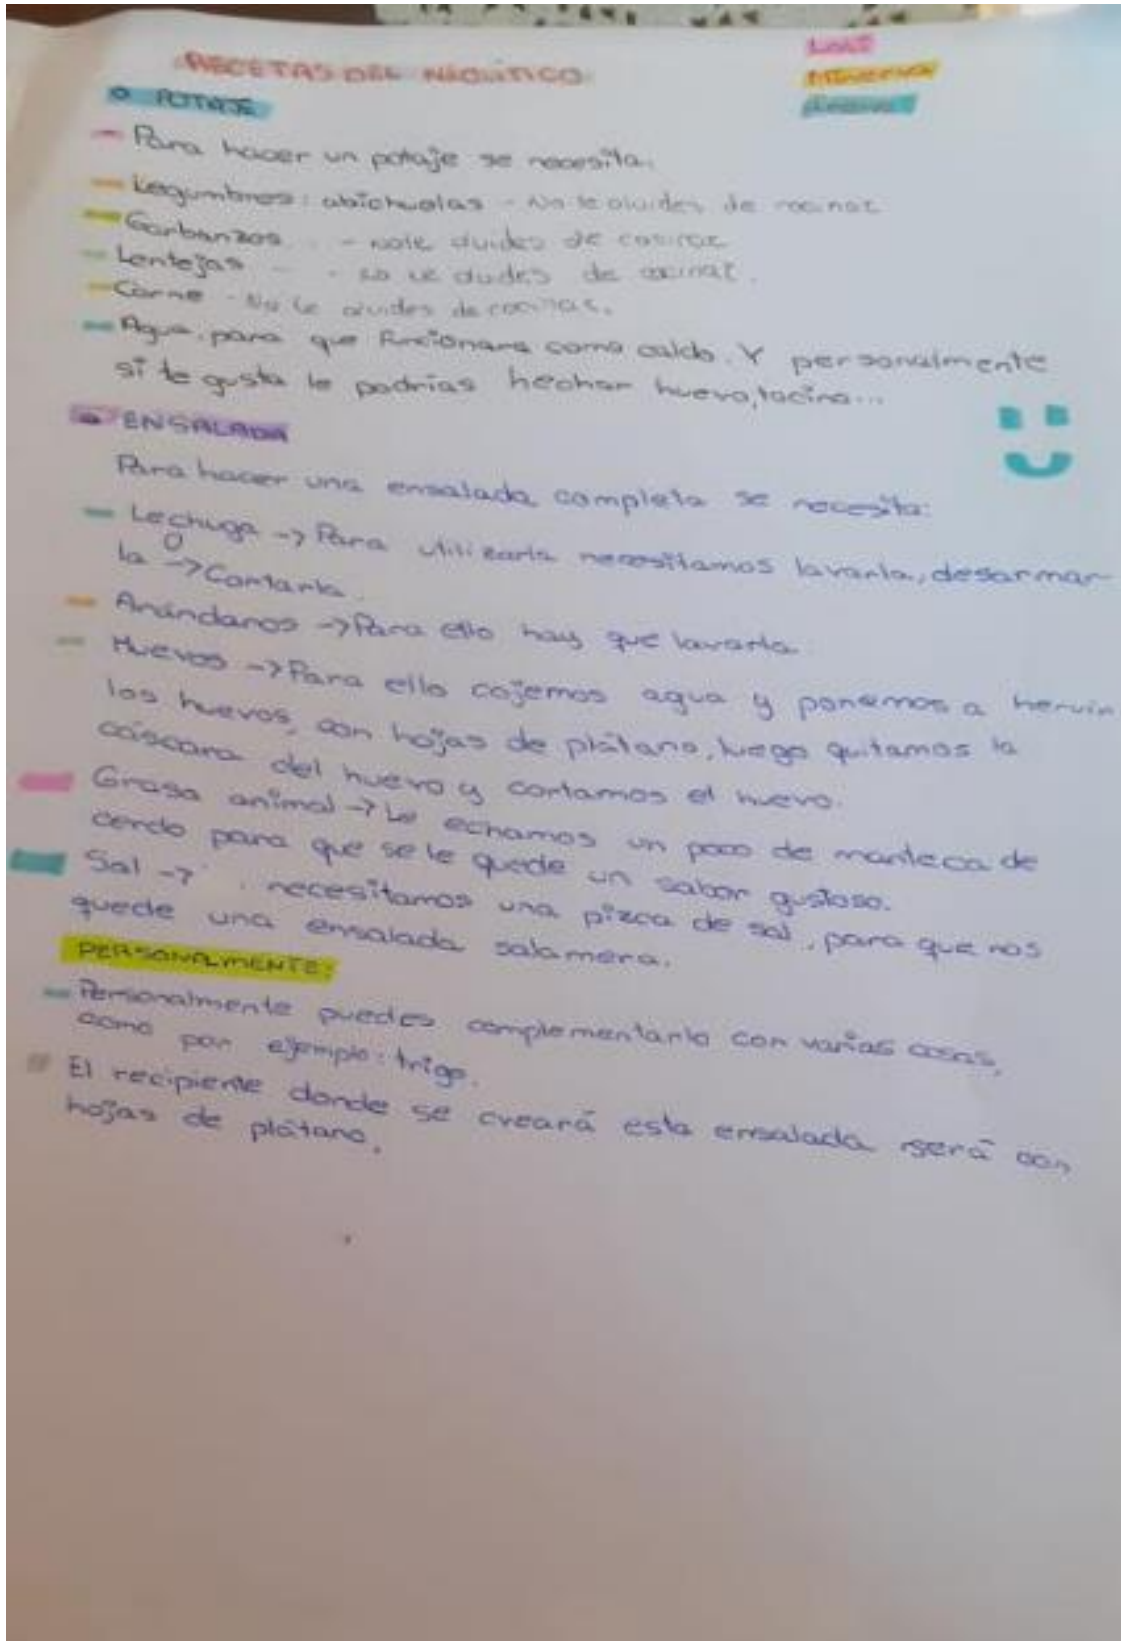 RECETAS DEL NEOLÍTICO
MINERVA
POTAJE
- Para hacer un potaje se necesita.
- Legumbres: abichuelas - No te olvides de cocinar
- Garbanzos - no te olvides de cocinar
- Lentejas - no te olvides de cocinar.
- Carne - No te olvides de cocinar.
- Agua, para que funcionara como caldo. Y personalmente
si te gusta le podrías hechar huevo, tocino...
ENSALADA
Para hacer una ensalada completa se necesita:
- Lechuga -> Para utilizarla necesitamos lavarla, desarmar-
la -> Cortarla.
- Arándanos -> Para ello hay que lavarla.
- Huevos -> Para ello cojemos agua y ponemos a hervir
los huevos, con hojas de plátano, luego quitamos la
cáscara del huevo y cortamos el huevo.
Grasa animal -> Le echamos un poco de manteca de
cerdo para que se le quede un sabor gustoso.
Sal -> necesitamos una pizca de sal, para que nos
quede una ensalada salamera.
PERSONALMENTE:
- Personalmente puedes complementarlo con varias cosas,
como por ejemplo: trigo.
El recipiente donde se creará esta ensalada será con
hojas de plátano.